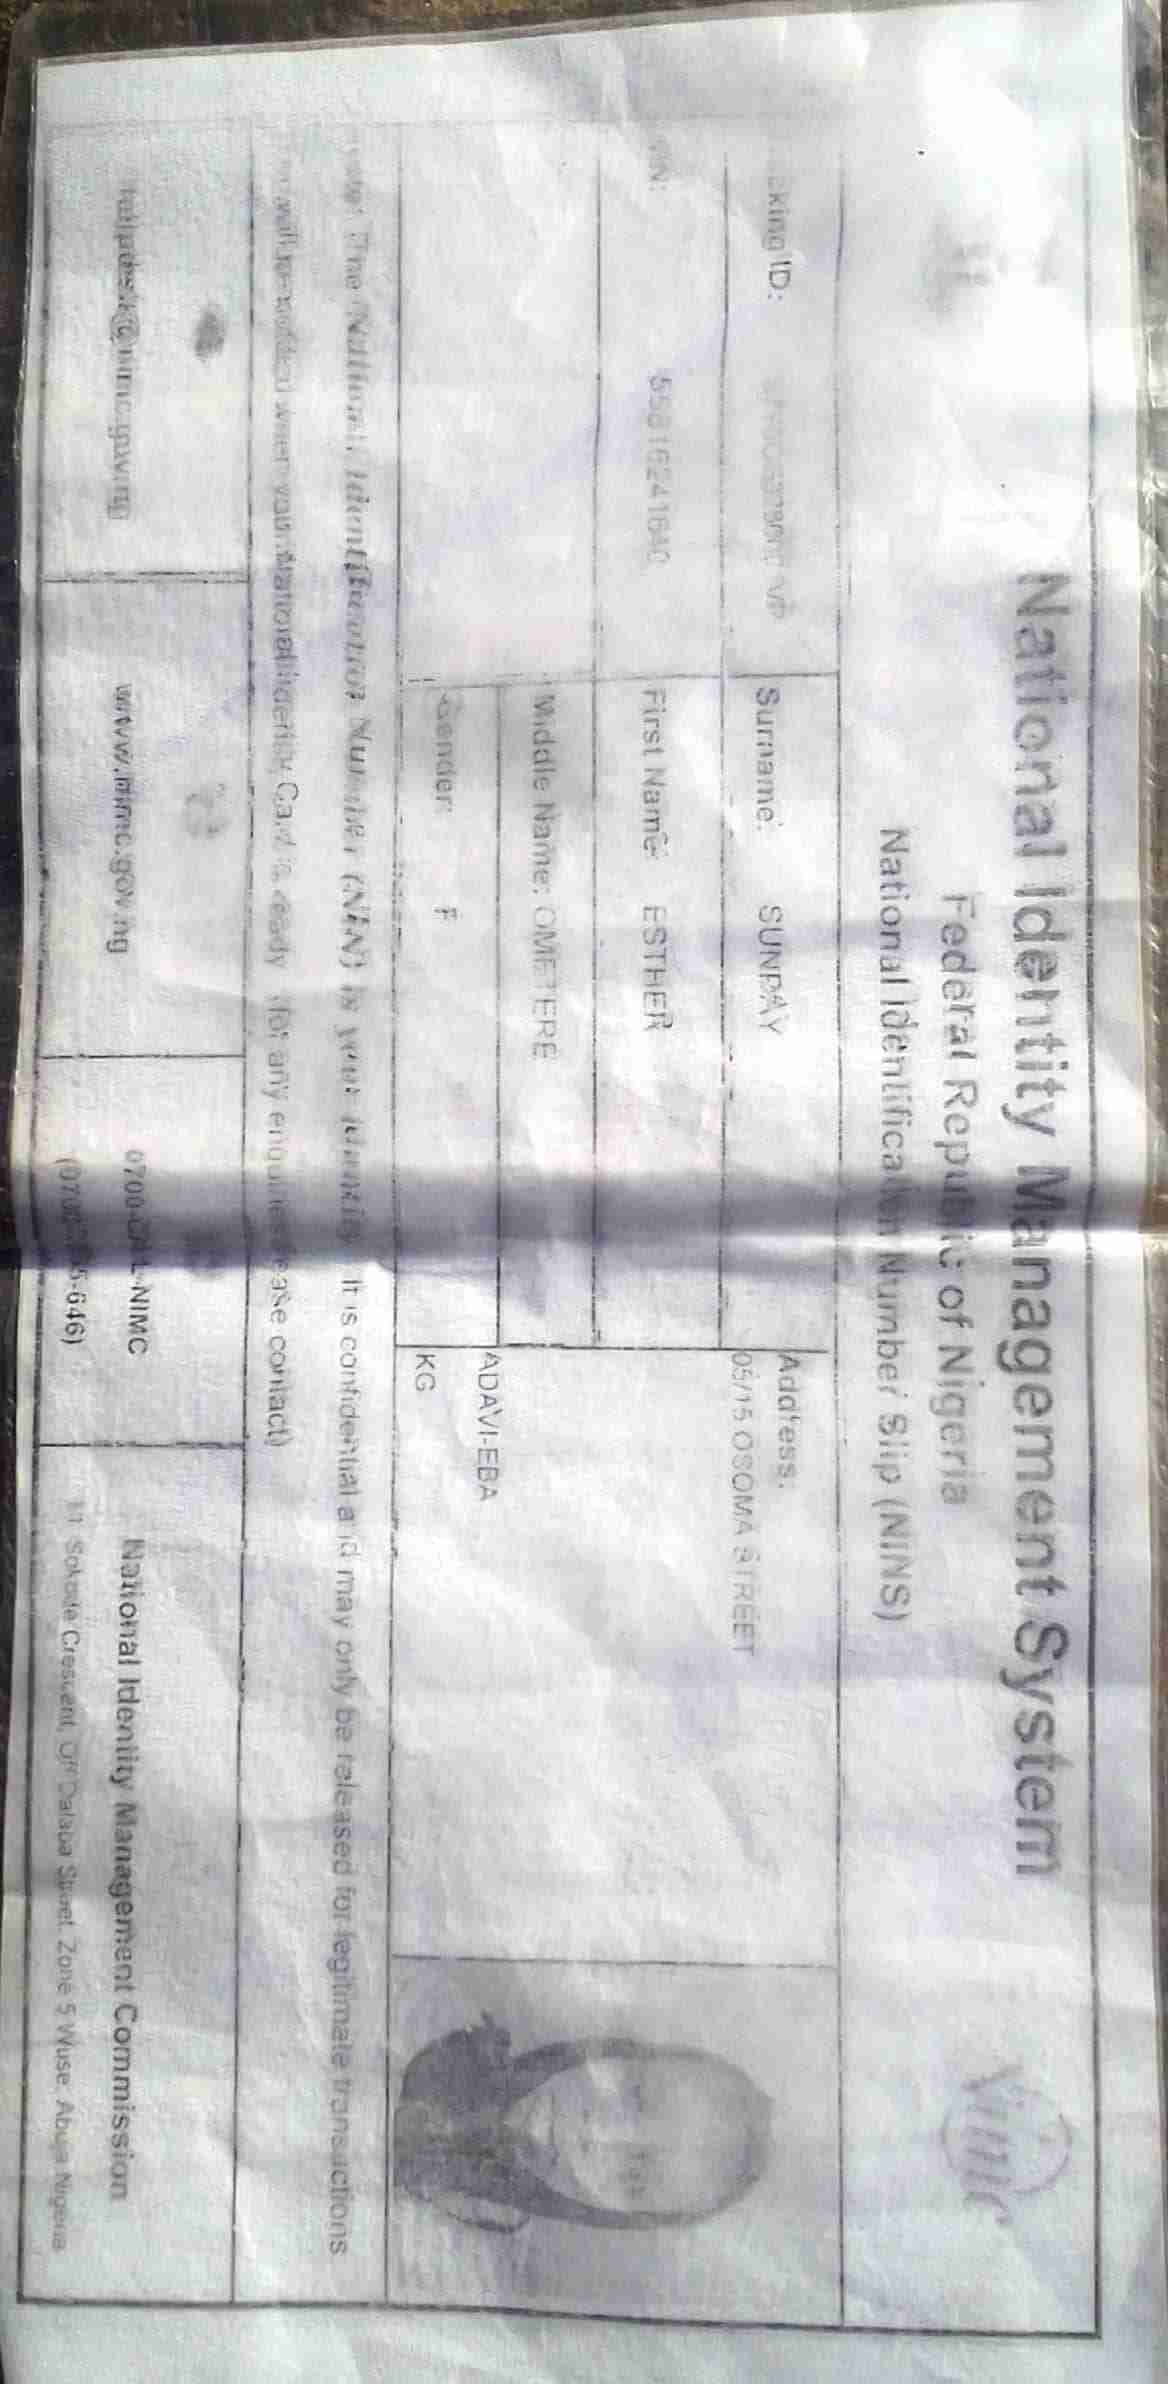 National Identity Management System
Federal Republic of Nigeria
National Identification Number Slip (NINS)
nimc
ID:
Surname: SUNDAY
Address:
05/15 OSOMA STREET
First Name: ESTHER
Middle Name: OMETERE
ADAVI-EBA
Gender: F
KG
The National Identification Number (NIN) is your identity. It is confidential and may only be released for legitimate transactions
when your National Identity Card is ready (for any enquiries please contact)
helpdesk@nimc.gov.ng
www.nimc.gov.ng
0700-CALL-NIMC
National Identity Management Commission
11 Sokode Crescent, Off Dalaba Street, Zone 5 Wuse, Abuja Nigeria